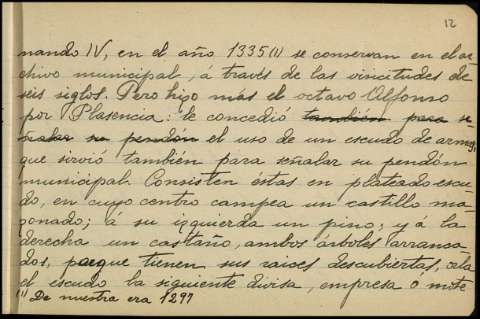 12
nando IV, en el año 1335(1) se conservan en el ar-
chivo municipal, á través de las vincitudes de
seis siglos. Pero hizo más el octavo Alfonso
por Plasencia: le concedió también para se-
ñalar su pendón el uso de un escudo de armas,
que sirvió también para señalar su pendón
municipal. Consisten éstas en plateado escu-
do, en cuyo centro campea un castillo ma-
zonado; á su izquierda un pino; y á la
derecha un castaño, ambos árboles arranca-
dos, porque tienen sus raices descubiertas,
el escudo la siguiente divisa, empresa o mote
(1) De nuestra era 1297